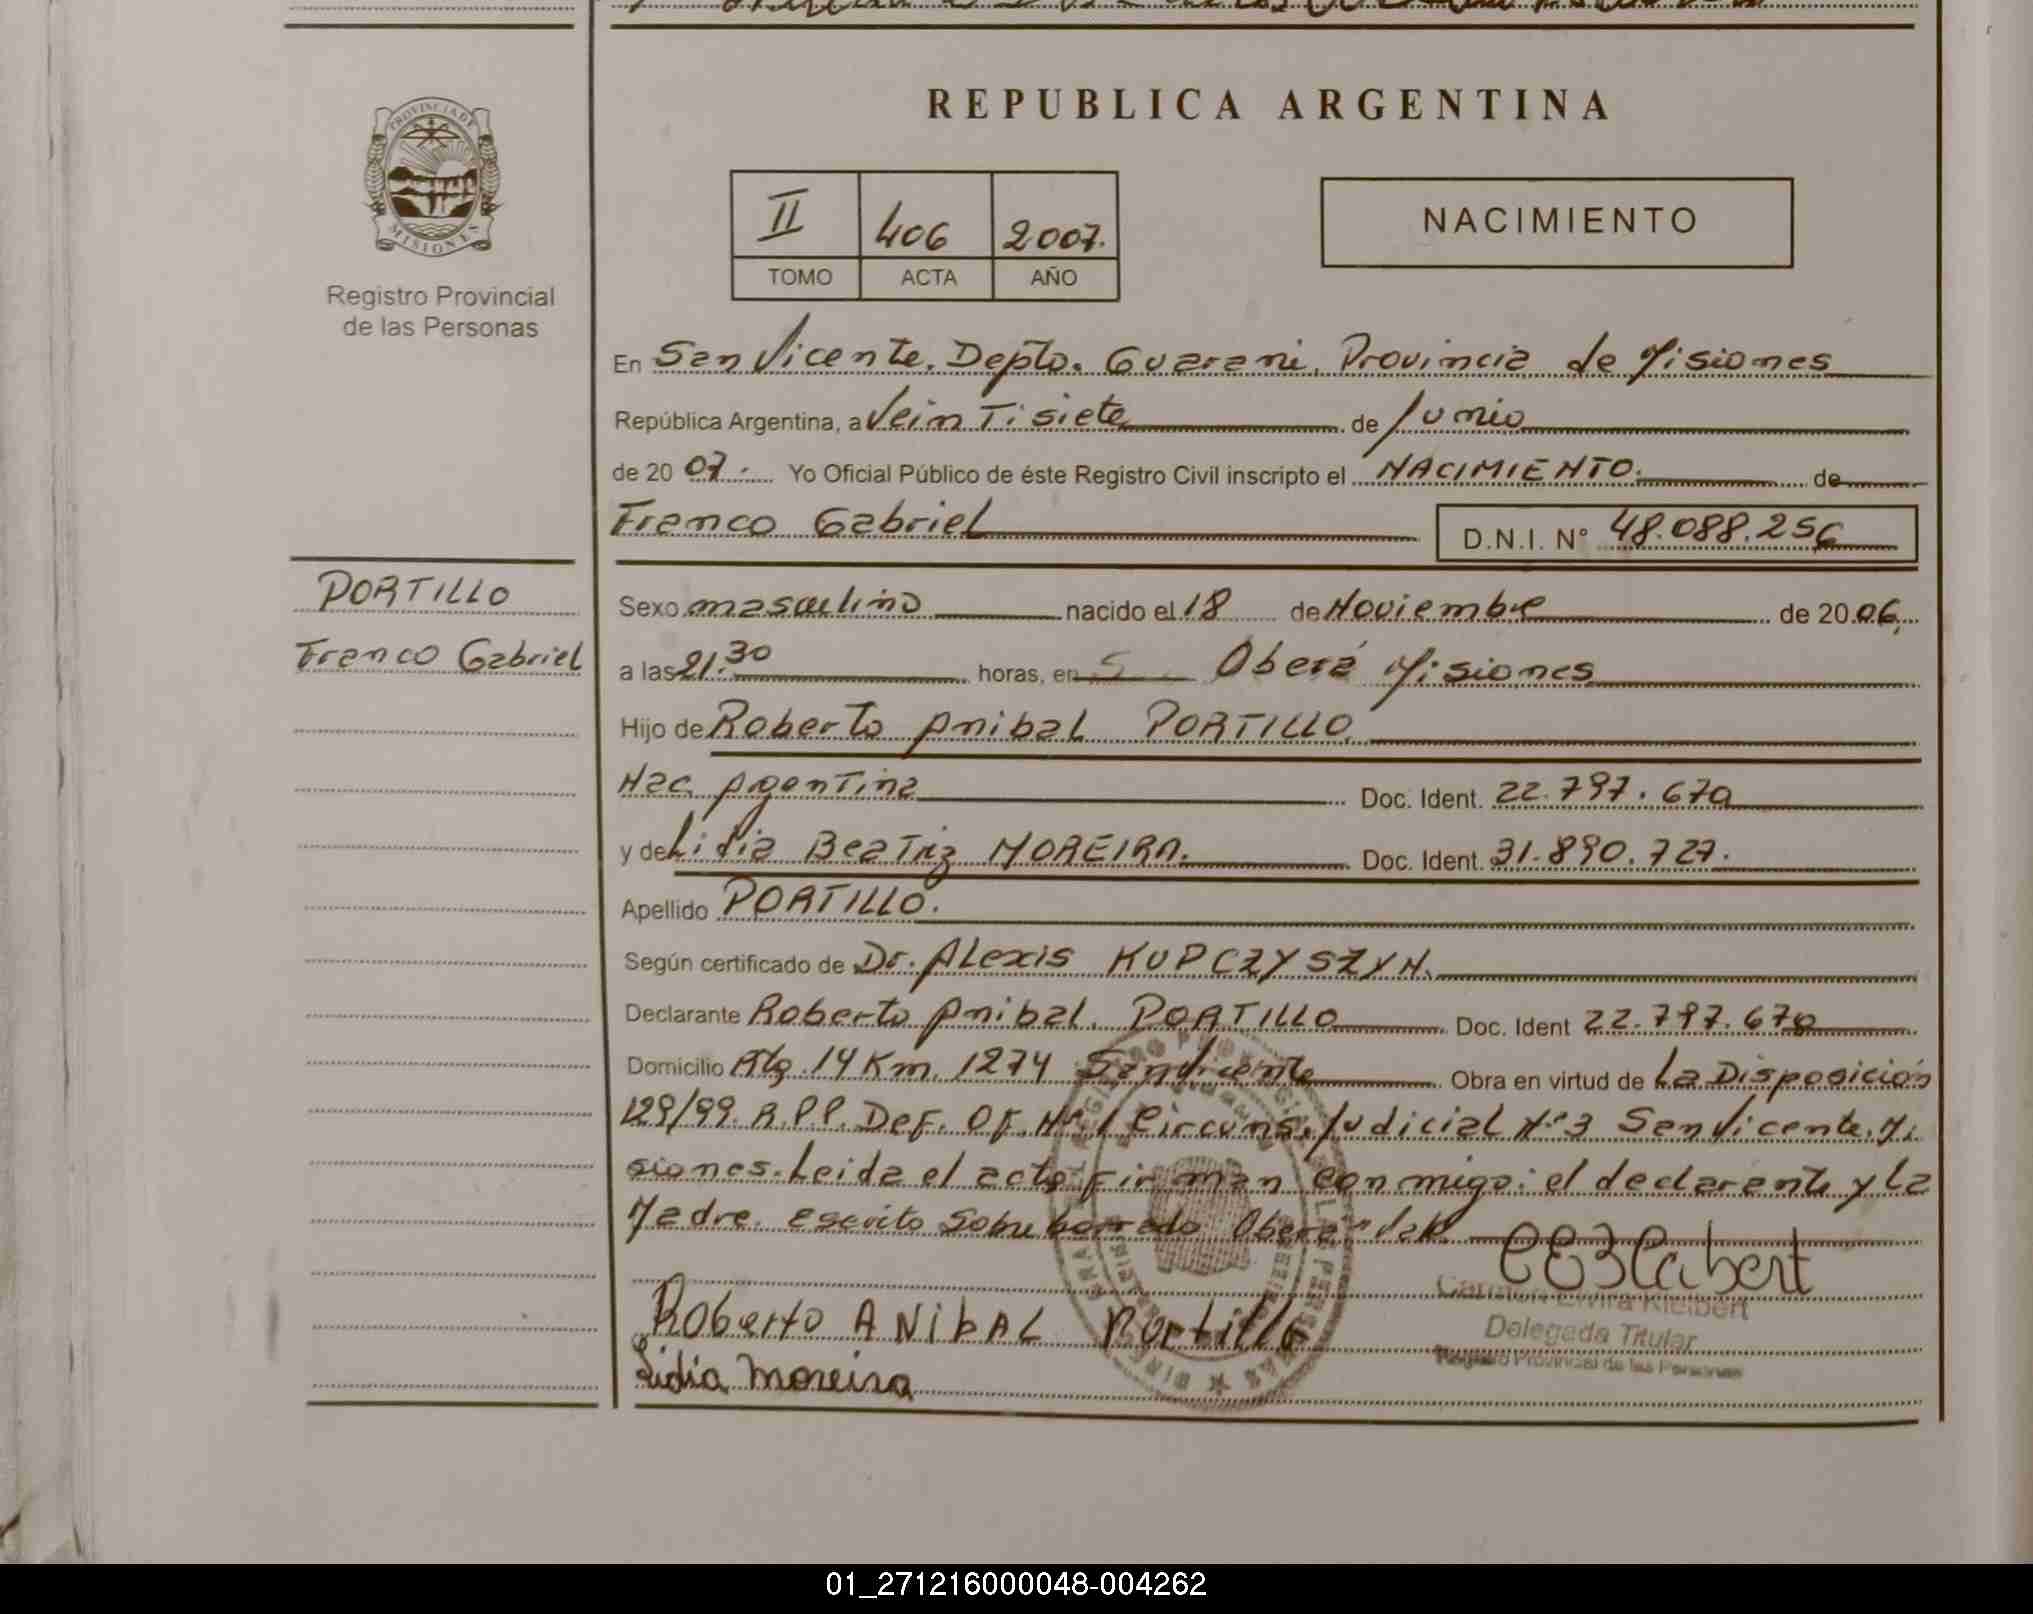 PROVINCIA DE
MISIONES
Registro Provincial
de las Personas
REPUBLICA ARGENTINA
II 406 2007.
TOMO ACTA AÑO
NACIMIENTO
En San Vicente. Depto. Guarani, Provincia de Misiones
República Argentina, a Veintisiete de Junio
de 20 07. Yo Oficial Público de éste Registro Civil inscripto el NACIMIENTO. de
Franco Gabriel D.N.I. N° 48.088.256
PORTILLO
Franco Gabriel
Sexo masculino nacido el 18 de Noviembre de 20 06,
a las 21.30 horas, en Oberá Misiones
Hijo de Roberto Anibal PORTILLO.
Nac. Argentina Doc. Ident. 22.797.670
y de Lidia Beatriz MOREIRA. Doc. Ident. 31.890.727.
Apellido PORTILLO.
Según certificado de Dr. Alexis KUPCZYSZYN.
Declarante Roberto Anibal. PORTILLO Doc. Ident 22.797.670
Domicilio Rta. 14 Km. 1274 San Vicente Obra en virtud de La Disposición
129/99. R.P.P. Def. Of. Nº 1 Circuns. Judicial Nº 3 San Vicente, Mi
siones. Leida el acta firman conmigo: el declarante y la
Madre. escrito sobre borrado Oberá" Vale
Roberto ANibAL Portillo
Lidia Moreira
Carmen Elvira Kleibert
Delegada Titular
Registro Provincial de las Personas
01_271216000048-004262